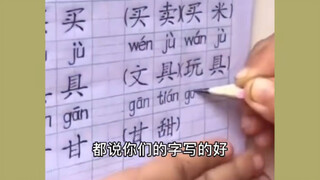 买 (买卖)(买米)
jù wén jù wán jù
具 (文具)(玩具)
gān gān tián gā
甘 (甘甜)
都说你们的字写的好